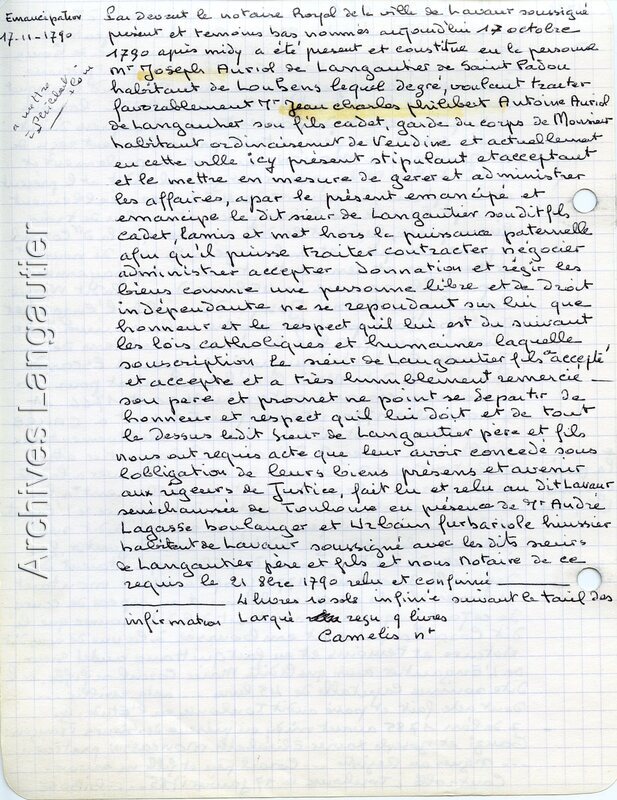 Emancipation
17-11-1790
a mettre
Philibert
Archives Langautier
Par devant le notaire Royal de la ville de Lavaur soussigné
présent et temoins bas nommés aujourd'hui 17 octobre
1790 après midy a été present et constitué en le personne
Mr Joseph Auriol de Langautier de Saint Padou
habitant de Loubens lequel degré, voulant traiter
favorablement Mr Jean charles philibert Antoine Auriol
de Langautier son fils cadet, garde du corps de Monsieur
habitant ordinairement de Vendine et actuellement
en cette ville icy présent stipulant et acceptant
et le mettre en mesure de gérer et administrer
les affaires, a par le présent emancipé et
emancipe le dit sieur de Langautier son dit fils
cadet, l'amis et met hors la puissance paternelle
afin qu'il puisse traiter contracter négocier
administrer accepter Donnation et régir les
biens comme une personne libre et de droit
indépendante ne se repondant sur lui que
honneur et le respect quil lui est du suivant
les lois catholiques et humaines laquelle
souscription le sieur de Langautier fils a accepté
et accepte et a très humblement remercié
son père et promet ne point se departir de
honneur et respect quil lui doit et de tout
le dessus ledit Sieur de Langautier père et fils
nous ont requis acte que leur avoir concedé sous
l'obligation de leurs biens présens et avenir
aux rigeurs de Justice, fait lu et relu au dit Lavaur
senéchaussée de Toulouse en présence de Mr André
Lagasse boulanger et Urbain furbariole huissier
habitant de Lavaur soussigné avec les dits sieurs
de Langautier père et fils et nous Notaire de ce
requis le 21 8bre 1790 relu et confirmé
4 livres 10 sols infinié suivant le tarif des
infirmation Larqué reçu 9 livres
Camelis nt